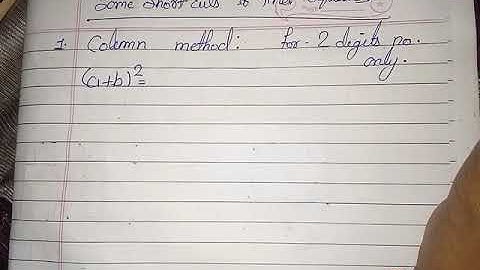 Some Short cuts to find squares
1. Column method: for 2 digits no.
only.
(a+b)²=